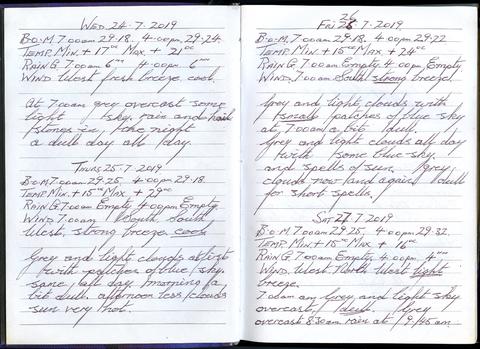 WED 24-7-2019
B.O.M 7.00am 29.18. 4.00pm 29.24.
TEMP. MIN. + 17°C MAX + 21°C
RAIN G. 7.00am 6mm 4.00pm 6mm
WIND West fresh breeze cool.
At 7.00am grey overcast some
light sky. rain and hail
stones in the night
a dull day all day.
THURS 25.7.2019
B.O.M 7.00am 29.25. 4.00pm 29.18.
TEMP. MIN. + 15°C MAX + 29°C
RAIN G. 7.00am Empty 4.00pm Empty
WIND 7.00am South South
West. strong breeze cool
Grey and light clouds at first
with patches of blue sky.
same all day morning a
bit dull. afternoon less clouds
sun very hot.
FRI 26 7-2019
B.O.M 7.00am 29.18. 4.00pm 29.22
TEMP. MIN. + 15°C MAX + 24°C
RAIN G 7.00am Empty 4.00pm Empty
WIND. 7.00am South strong breeze
Grey and light clouds with
small patches of blue sky
at 7.00am a bit dull.
Grey and light clouds all day
with some blue sky.
and spells of sun. grey
clouds now and again dull
for short spells.
SAT 27 7-2019
B.O.M. 7.00am 29.25. 4.00pm 29.32.
TEMP. MIN + 15°C MAX + 16°C
RAIN G. 7.00am Empty. 4.00pm. 4mm
WIND. West North West light
breeze.
7.00am Grey and light sky
overcast, dull. Grey
overcast 8.30am rain at 9.45am